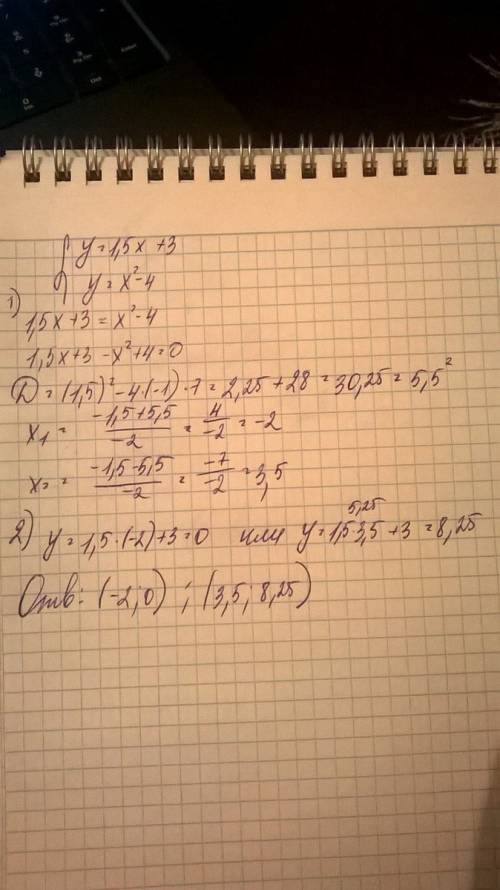 { y = 1,5x + 3
y = x² - 4
1)
1,5x + 3 = x² - 4
1,5x + 3 - x² + 4 = 0
D = (1,5)² - 4·(-1)·7 = 2,25 + 28 = 30,25 = 5,5²
x₁ = (-1,5+5,5)/(-2) = 4/(-2) = -2
x₂ = (-1,5-5,5)/(-2) = -7/(-2) = 3,5
5,25
2) y = 1,5·(-2)+3=0 или y = 1,5·3,5 + 3 = 8,25
Отв: (-2; 0) ; (3,5; 8,25)